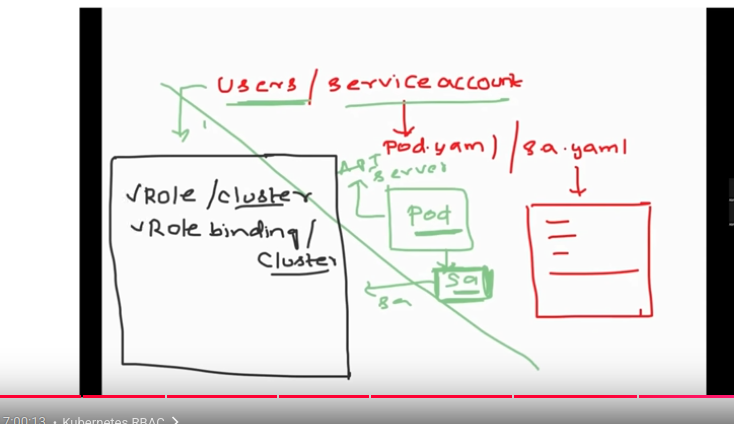 Users / Service account
Pod.yaml / sa.yaml
API
server
✓Role / cluster
Pod
✓Role binding /
Cluster
sa
sa
7:00:13 • Kubernetes RBAC >